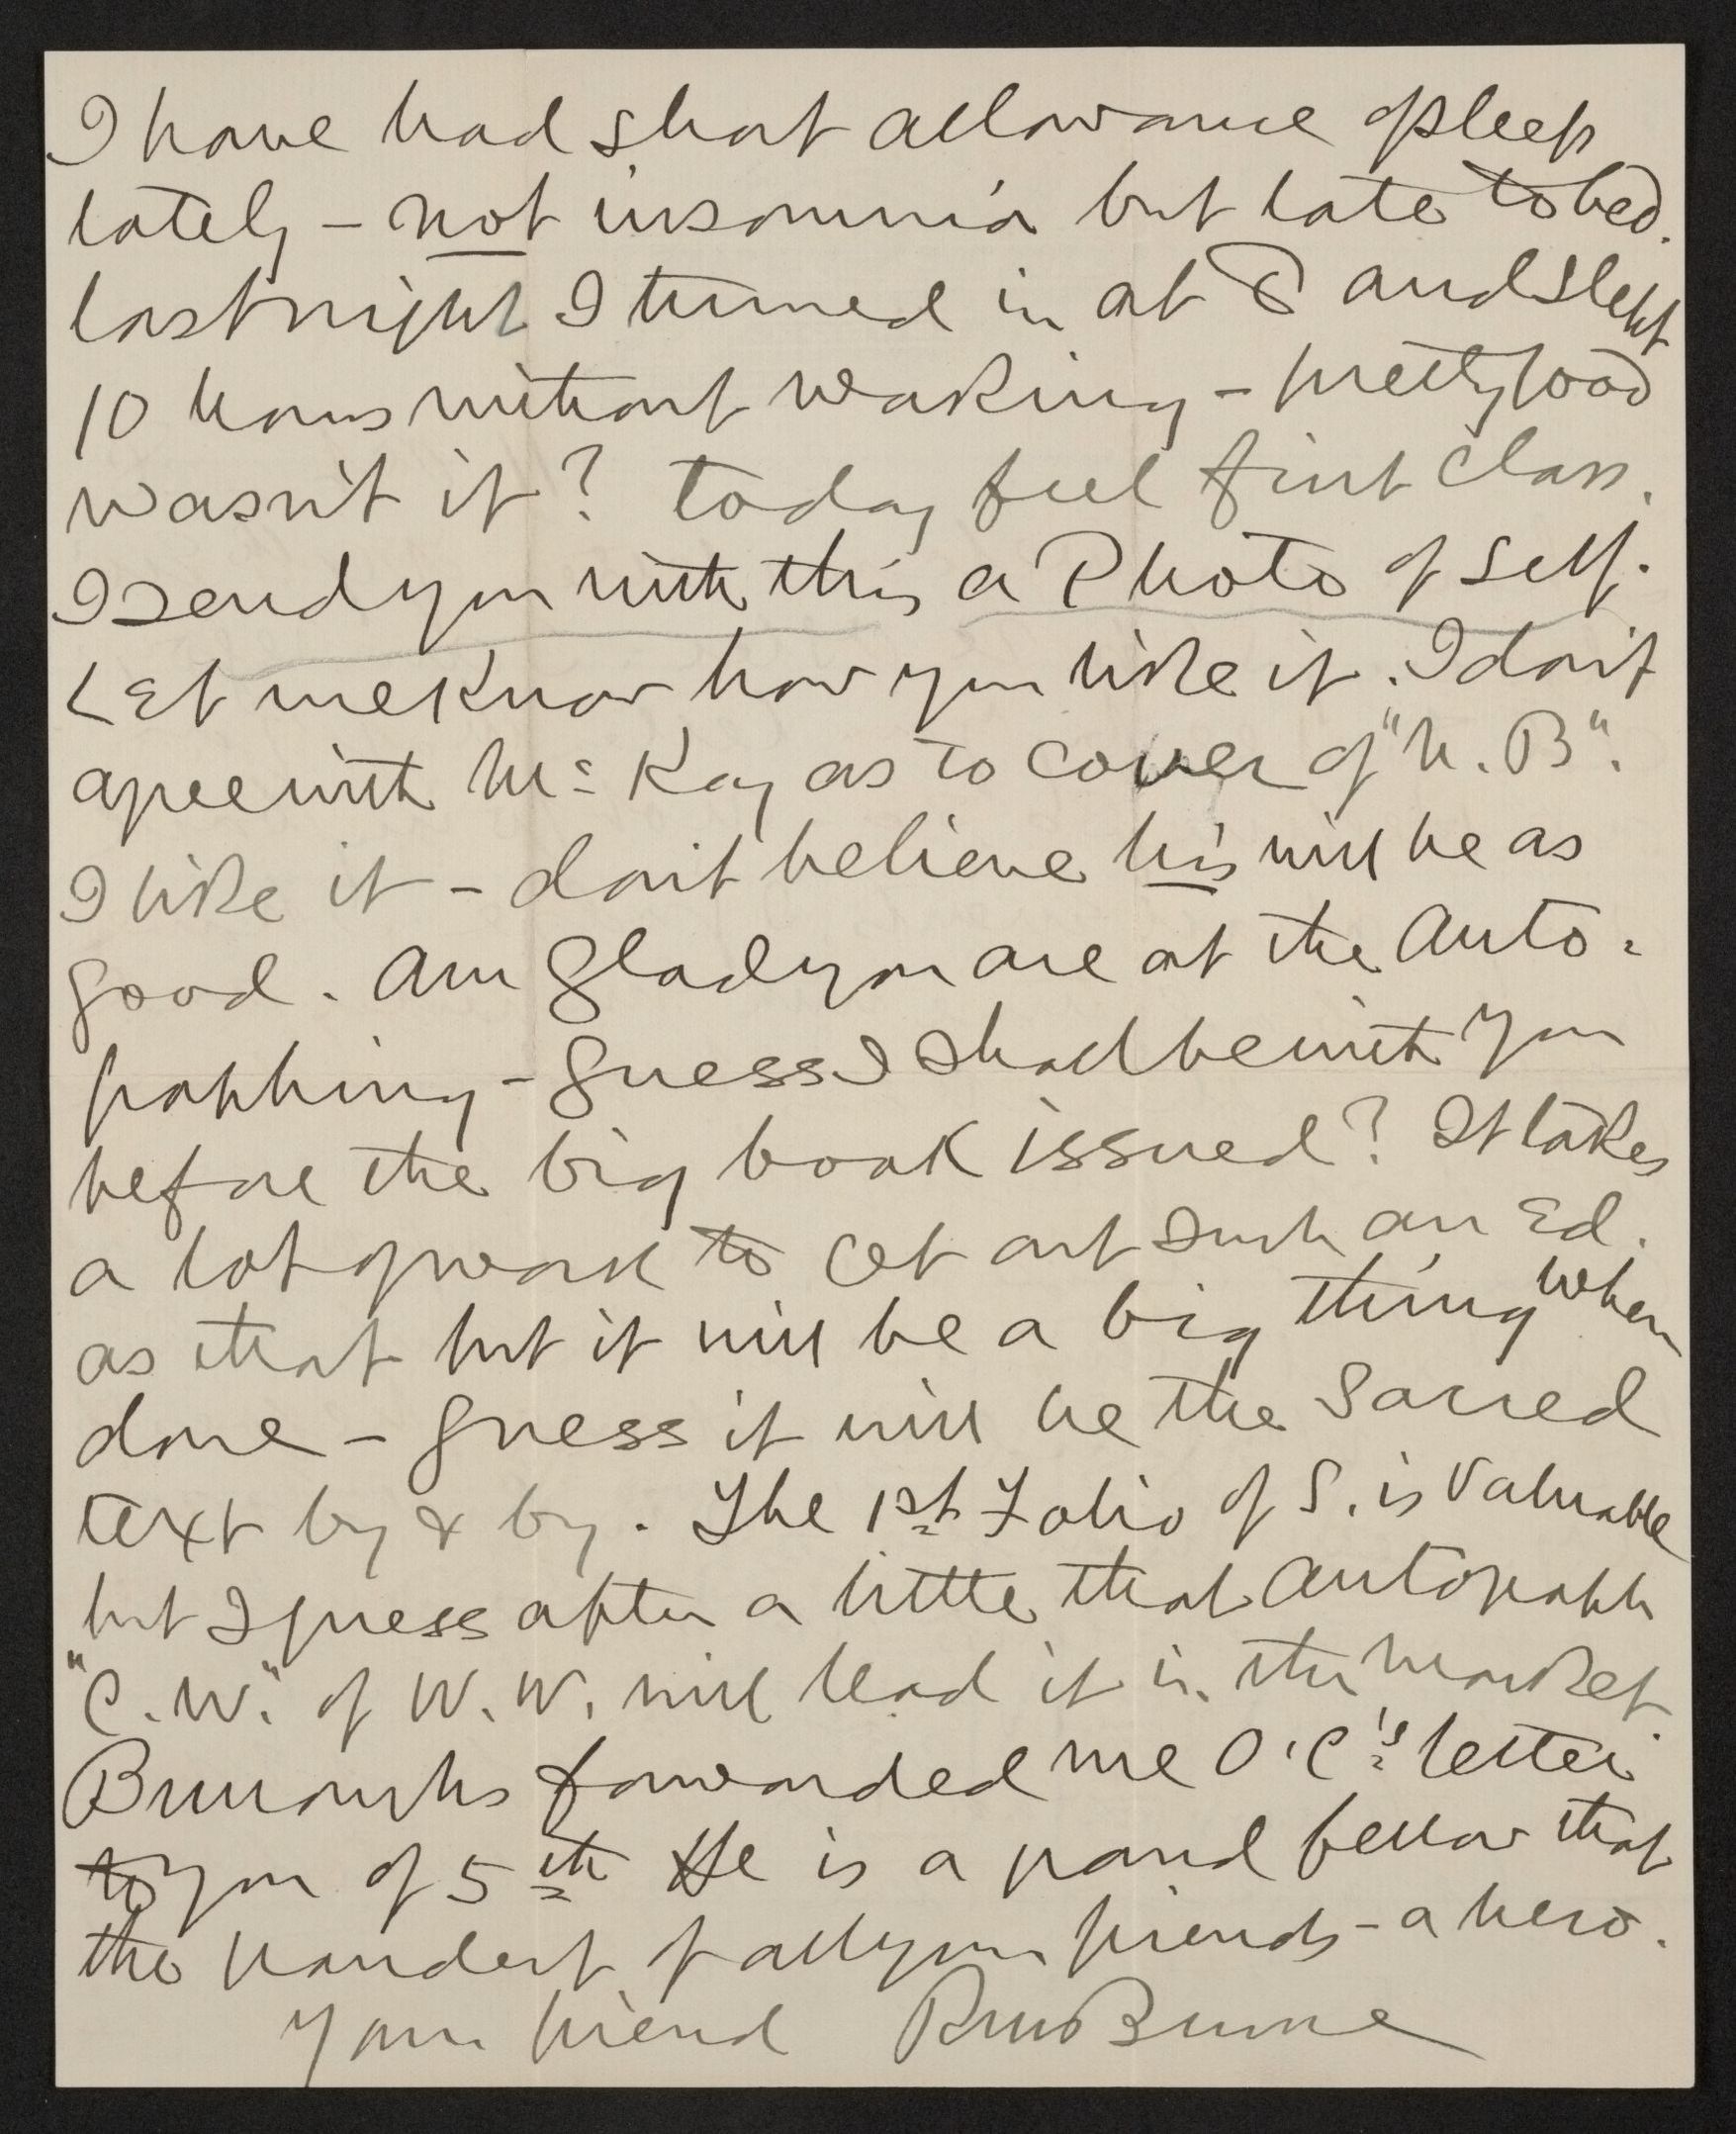 I have had short allowance of sleep
lately – not insomnia but late to bed.
last night I turned in at 8 and slept
10 hours without waking – pretty good
wasn't it? today feel first class.
I send you with this a Photo of self.
Let me know how you like it. I don't
agree with Mc Kay as to cover of "N. B".
I like it – don't believe his will be as
good. Am glad you are at the Auto-
graphing – guess I shall be with you
before the big book issued? It takes
a lot of work to get out such an Ed.
as that but it will be a big thing when
done – guess it will be the Sacred
text by & by. The 1st Folio of S. is valuable
but I guess after a little that autograph
"C.W." of W. W. will lead it in the market.
Burroughs forwarded me O'C's letter
to you of 5th He is a grand fellow that
the grandest of all your friends – a hero.
Your friend RM Bucke